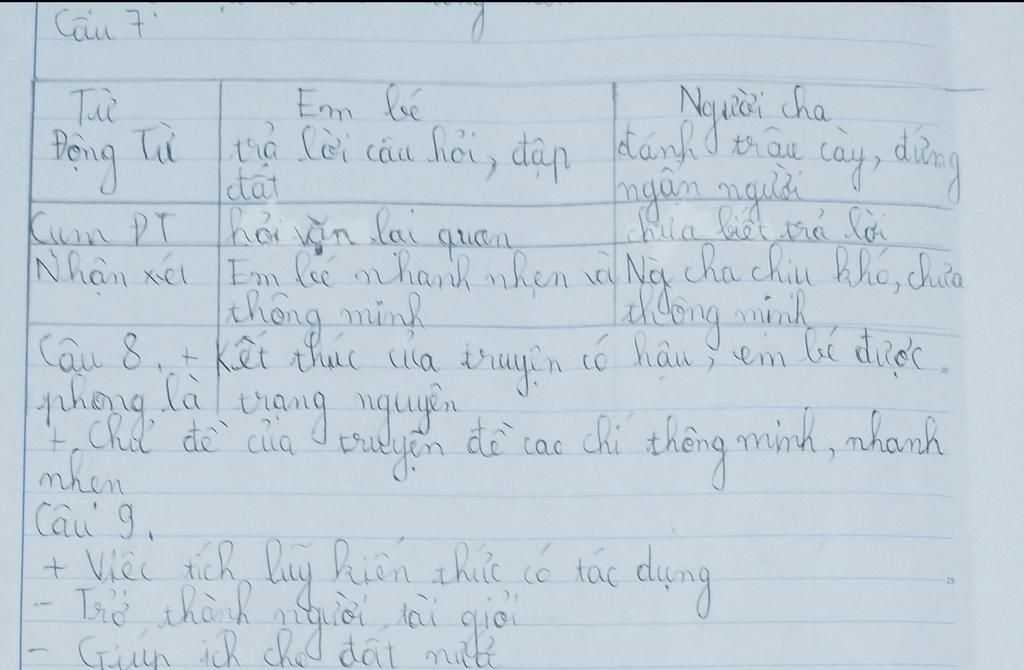 Câu 7
Từ Em bé Người cha
Động Từ trả lời câu hỏi, đập đánh trâu cày, đứng
đất ngẩn người
Cụm ĐT hỏi vặn lại quan chưa biết trả lời
Nhận xét Em bé nhanh nhẹn và Ng cha chịu khó, chưa
thông minh thông minh
Câu 8. + Kết thúc của truyện có hậu, em bé được
phong là trạng nguyên
+ Chủ đề của truyện đề cao chí thông minh, nhanh
nhẹn
Câu 9.
+ Việc tích luỹ kiến thức có tác dụng
- Trở thành người tài giỏi
- Giúp ích cho đất nước